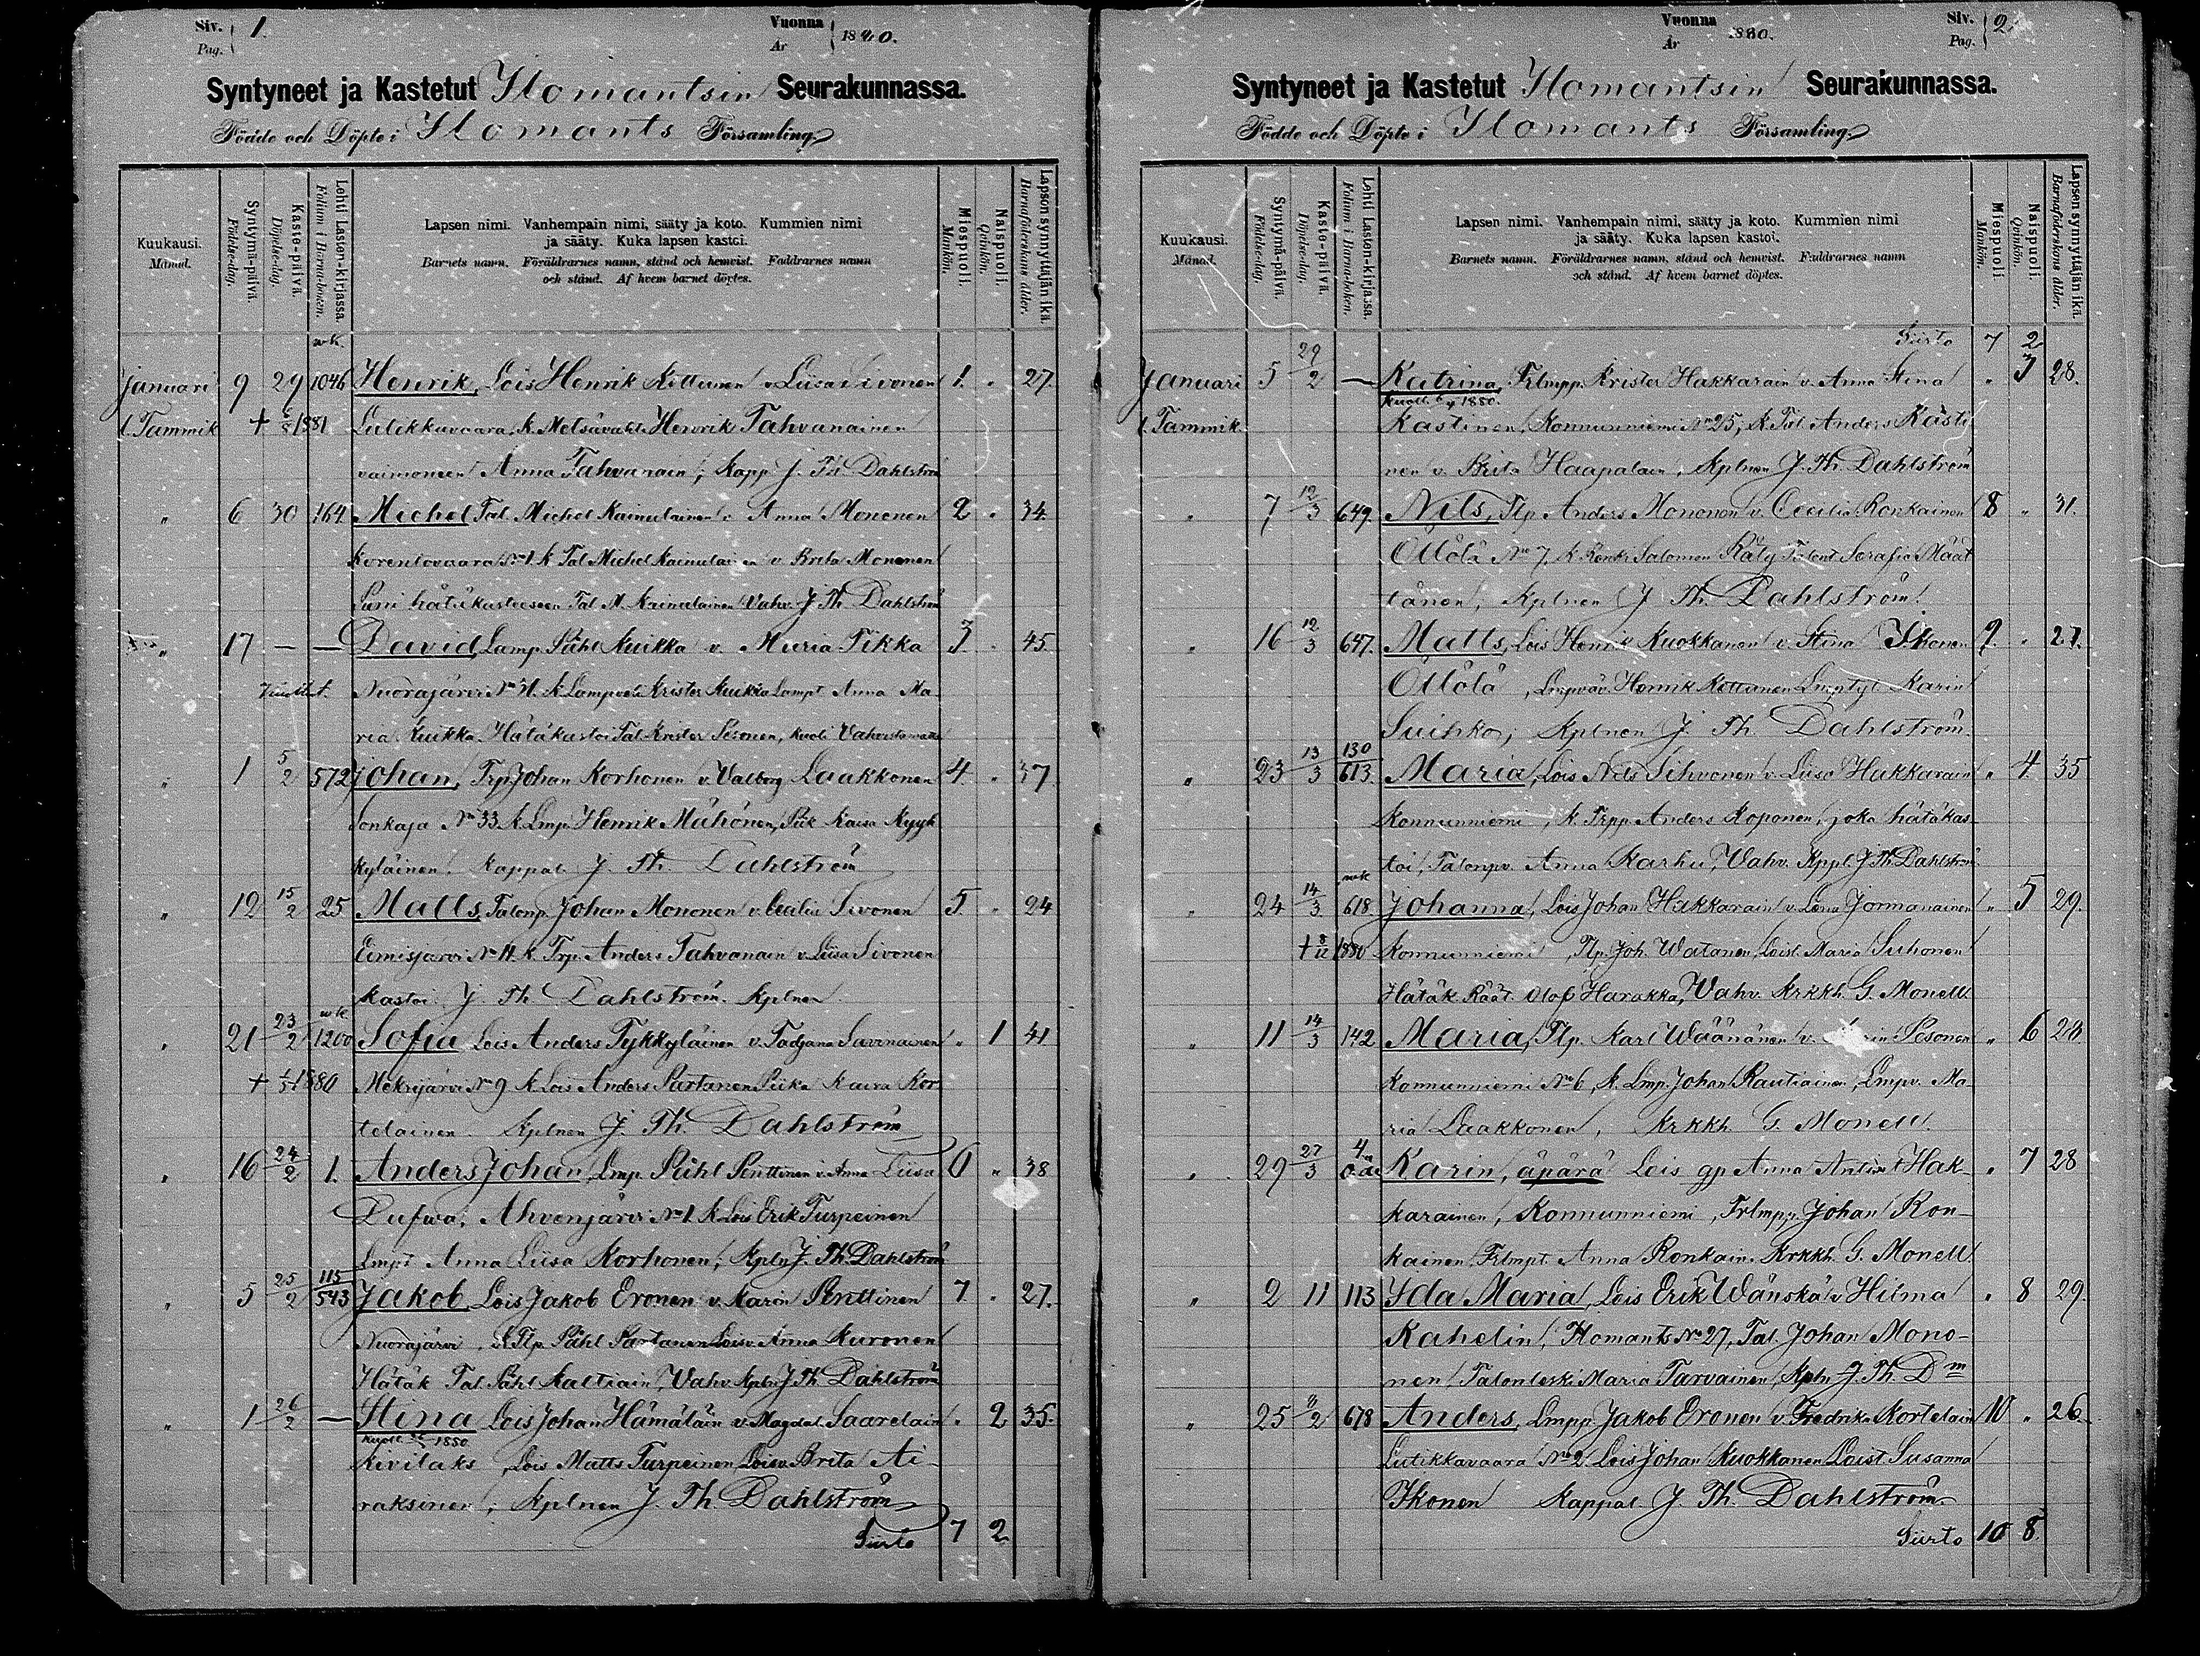 Siv. 1.
Pag.
Vuonna 1880.
År
Syntyneet ja Kastetut Ilomantsin Seurakunnassa.
Födde och Döpte i Ilomants Församling.
Kuukausi. Månad.
Syntymä-päivä. Födelse-dag.
Kaste-päivä. Döpelse-dag.
Lehti Lasten-kirjassa. Folium i Barna-boken.
Lapsen nimi. Vanhempain nimi, sääty ja koto. Kummien nimi
ja sääty. Kuka lapsen kastoi.
Barnets namn. Föräldrarnes namn, stånd och hemvist. Faddrarnes namn
och stånd. Af hvem barnet döptes.
Miespuoli. Mankön.
Naispuoli. Qvinkön.
Lapsen synnyttäjän ikä. Barnaföderskans ålder.
wk.
Januari 9 29 1046 Henrik, Lois Henrik Kettunen v Liisa Sivonen 1. " 27.
l. Tammik + 1881 Lutikkuvaara, k. Metsävaht. Henrik Tahvanainen
vaimoneen Anna Tahvanain; Kapp J. Th Dahlström
" 6 30 164 Michel Tal. Michel Kainulainen v. Anna Mononen 2 " 34.
Korentovaara No 1. k Tal Michel Kainulainen v Brita Mononen
Suni hätäkasteeseen Tal M. Kainulainen Vahv. J. Th. Dahlström
" 17 — — David, Lamp. Påhl Kuikka v. Maria Tikka 3 " 45.
Nuorajärvi No 11. k Lampuoti Krister Kuikka Lampt Anna Ma
ria Kuikka. Hätäkastoi Tal. Krister Pesonen, kuoli Vahvistamatta
" 1 5/2 572 Johan, Trp Johan Korhonen v. Valborg Laakkonen 4. " 37.
Sonkaja No 33. k. Lmp. Henrik Mähönen, Piik Kaisa Kyyh
kyläinen. Kappal. J. Th. Dahlström
" 12 15/2 25 Matts, Talonp. Johan Mononen v. Cecilia Sivonen 5. " 24
Eimisjärvi No 11. k. Trp. Anders Tahvanain v. Liisa Sivonen
Kastoi J. Th Dahlström. Kplnen
wk
" 21 23/2 1200 Sofia Lois Anders Tykkyläinen v. Tadjana Savinainen " 1 41
+ 1880 Mekrijärvi No 9 k. Lois Anders Partanen Piika Kaisa Kor
telainen. Kplnen J. Th. Dahlström
" 16 24/2 1. Anders Johan, Lmp. Påhl Penttinen v. Anna Liisa 6 " 38
Pufwa, Ahvenjärvi No 1 k Lois Erik Turpeinen
Lmpt Anna Liisa Korhonen; Kpln J. Th. Dahlström
" 5 25/2 115/543 Jakob Lois Jakob Eronen v. Karin Penttinen 7 " 27.
Nuorajärvi, k. Tlp. Påhl Partanen Loisv. Anna Kuronen
Hätäk Tal. Påhl Kaltiain, Vahv. Kpln J. Th. Dahlström
" 1 26/2 — Stina Lois Johan Hämäläin v. Magdal. Saarelain " 2 35.
Kuoll. 1880
Kivilaks, Lois Matts Turpeinen Loisv. Brita Ai-
raksinen; Kplnen J. Th. Dahlström
Siirto 7 2
Siv. 2.
Pag.
Vuonna 1880.
År
Syntyneet ja Kastetut Ilomantsin Seurakunnassa.
Födde och Döpte i Ilomants Församling.
Kuukausi. Månad.
Syntymä-päivä. Födelse-dag.
Kaste-päivä. Döpelse-dag.
Lehti Lasten-kirjassa. Folium i Barna-boken.
Lapsen nimi. Vanhempain nimi, sääty ja koto. Kummien nimi
ja sääty. Kuka lapsen kastoi.
Barnets namn. Föräldrarnes namn, stånd och hemvist. Faddrarnes namn
och stånd. Af hvem barnet döptes.
Miespuoli. Mankön.
Naispuoli. Qvinkön.
Lapsen synnyttäjän ikä. Barnaföderskans ålder.
Siirto 7 2
Januari 5 29/2 — Katrina, Trlmpp. Krister Hakkarain v. Anna Stina " 3 28.
Kuoll. 1880.
l. Tammik. Kastinen, Konnunniemi No 25, k. Tal Anders Kasti
nen v. Brita Haapalain, Kplnen J. Th. Dahlström
" 7 12/3 649. Nils, Tlp Anders Mononen v. Cecilia Ronkainen 8 " 31.
Ollölä No 7, k. Renki Salomon Räty Talont Serafia Määt
tänen, Kplnen J Th. Dahlström.
" 16 12/3 647. Matts, Lois Henrik Kuokkanen v. Stina Ikonen 9. " 27.
Ollölä, Lmpväv. Henrik Kettunen Lmptyt Karin
Suihko; Kplnen J. Th Dahlström
" 23 13/3 130/613. Maria, Lois Nils Sihvonen v. Liisa Hakkarain " 4. 35
Konnunniemi, k. Trpp. Anders Koponen, joka hätäkas
toi, Talonpv. Anna Karhu, Vahv. Kppl. J Th. Dahlström
wk
" 24 14/3 618 Johanna, Lois Johan Hakkarain v. Lena Jormanainen " 5 29.
+ 8/12 1880 Konnunniemi, Tlp. Joh. Watanen, Loist. Maria Suhonen
Hätäk Räät. Olof Harakka, Vahv. Krkkh. G. Monell.
" 11 14/3 142 Maria, Tlp. Karl Wäänänen v. Pesonen " 6 28
Konnunniemi No 6, k. Lmp. Johan Rautiainen, Lmpv. Ma
ria Laakkonen, Krkkh. G. Monell.
" 29 27/3 Karin, äpärä Lois gp Anna Antint Hak- " 7 28
karainen, Konnunniemi, Trlmpp. Johan Ron-
kainen, Trlmpt. Anna Ronkain. Krkkh. G. Monell
" 2 11 113 Ida Maria, Lois Erik Wänskä v Hilma " 8 29.
Kahelin, Ilomants No 27, Tal. Johan Mono-
nen, Talonleski Maria Tarvainen, Kpln J. Th. Dm
" 25 8/2 678 Anders, Lmpp Jakob Eronen v. Fredrika Kortelain 10 " 26
Lutikkavaara No 2 Lois Johan Kuokkanen Loist Susanna
Ikonen Kappal. J. Th. Dahlström.
Siirto 10 8.